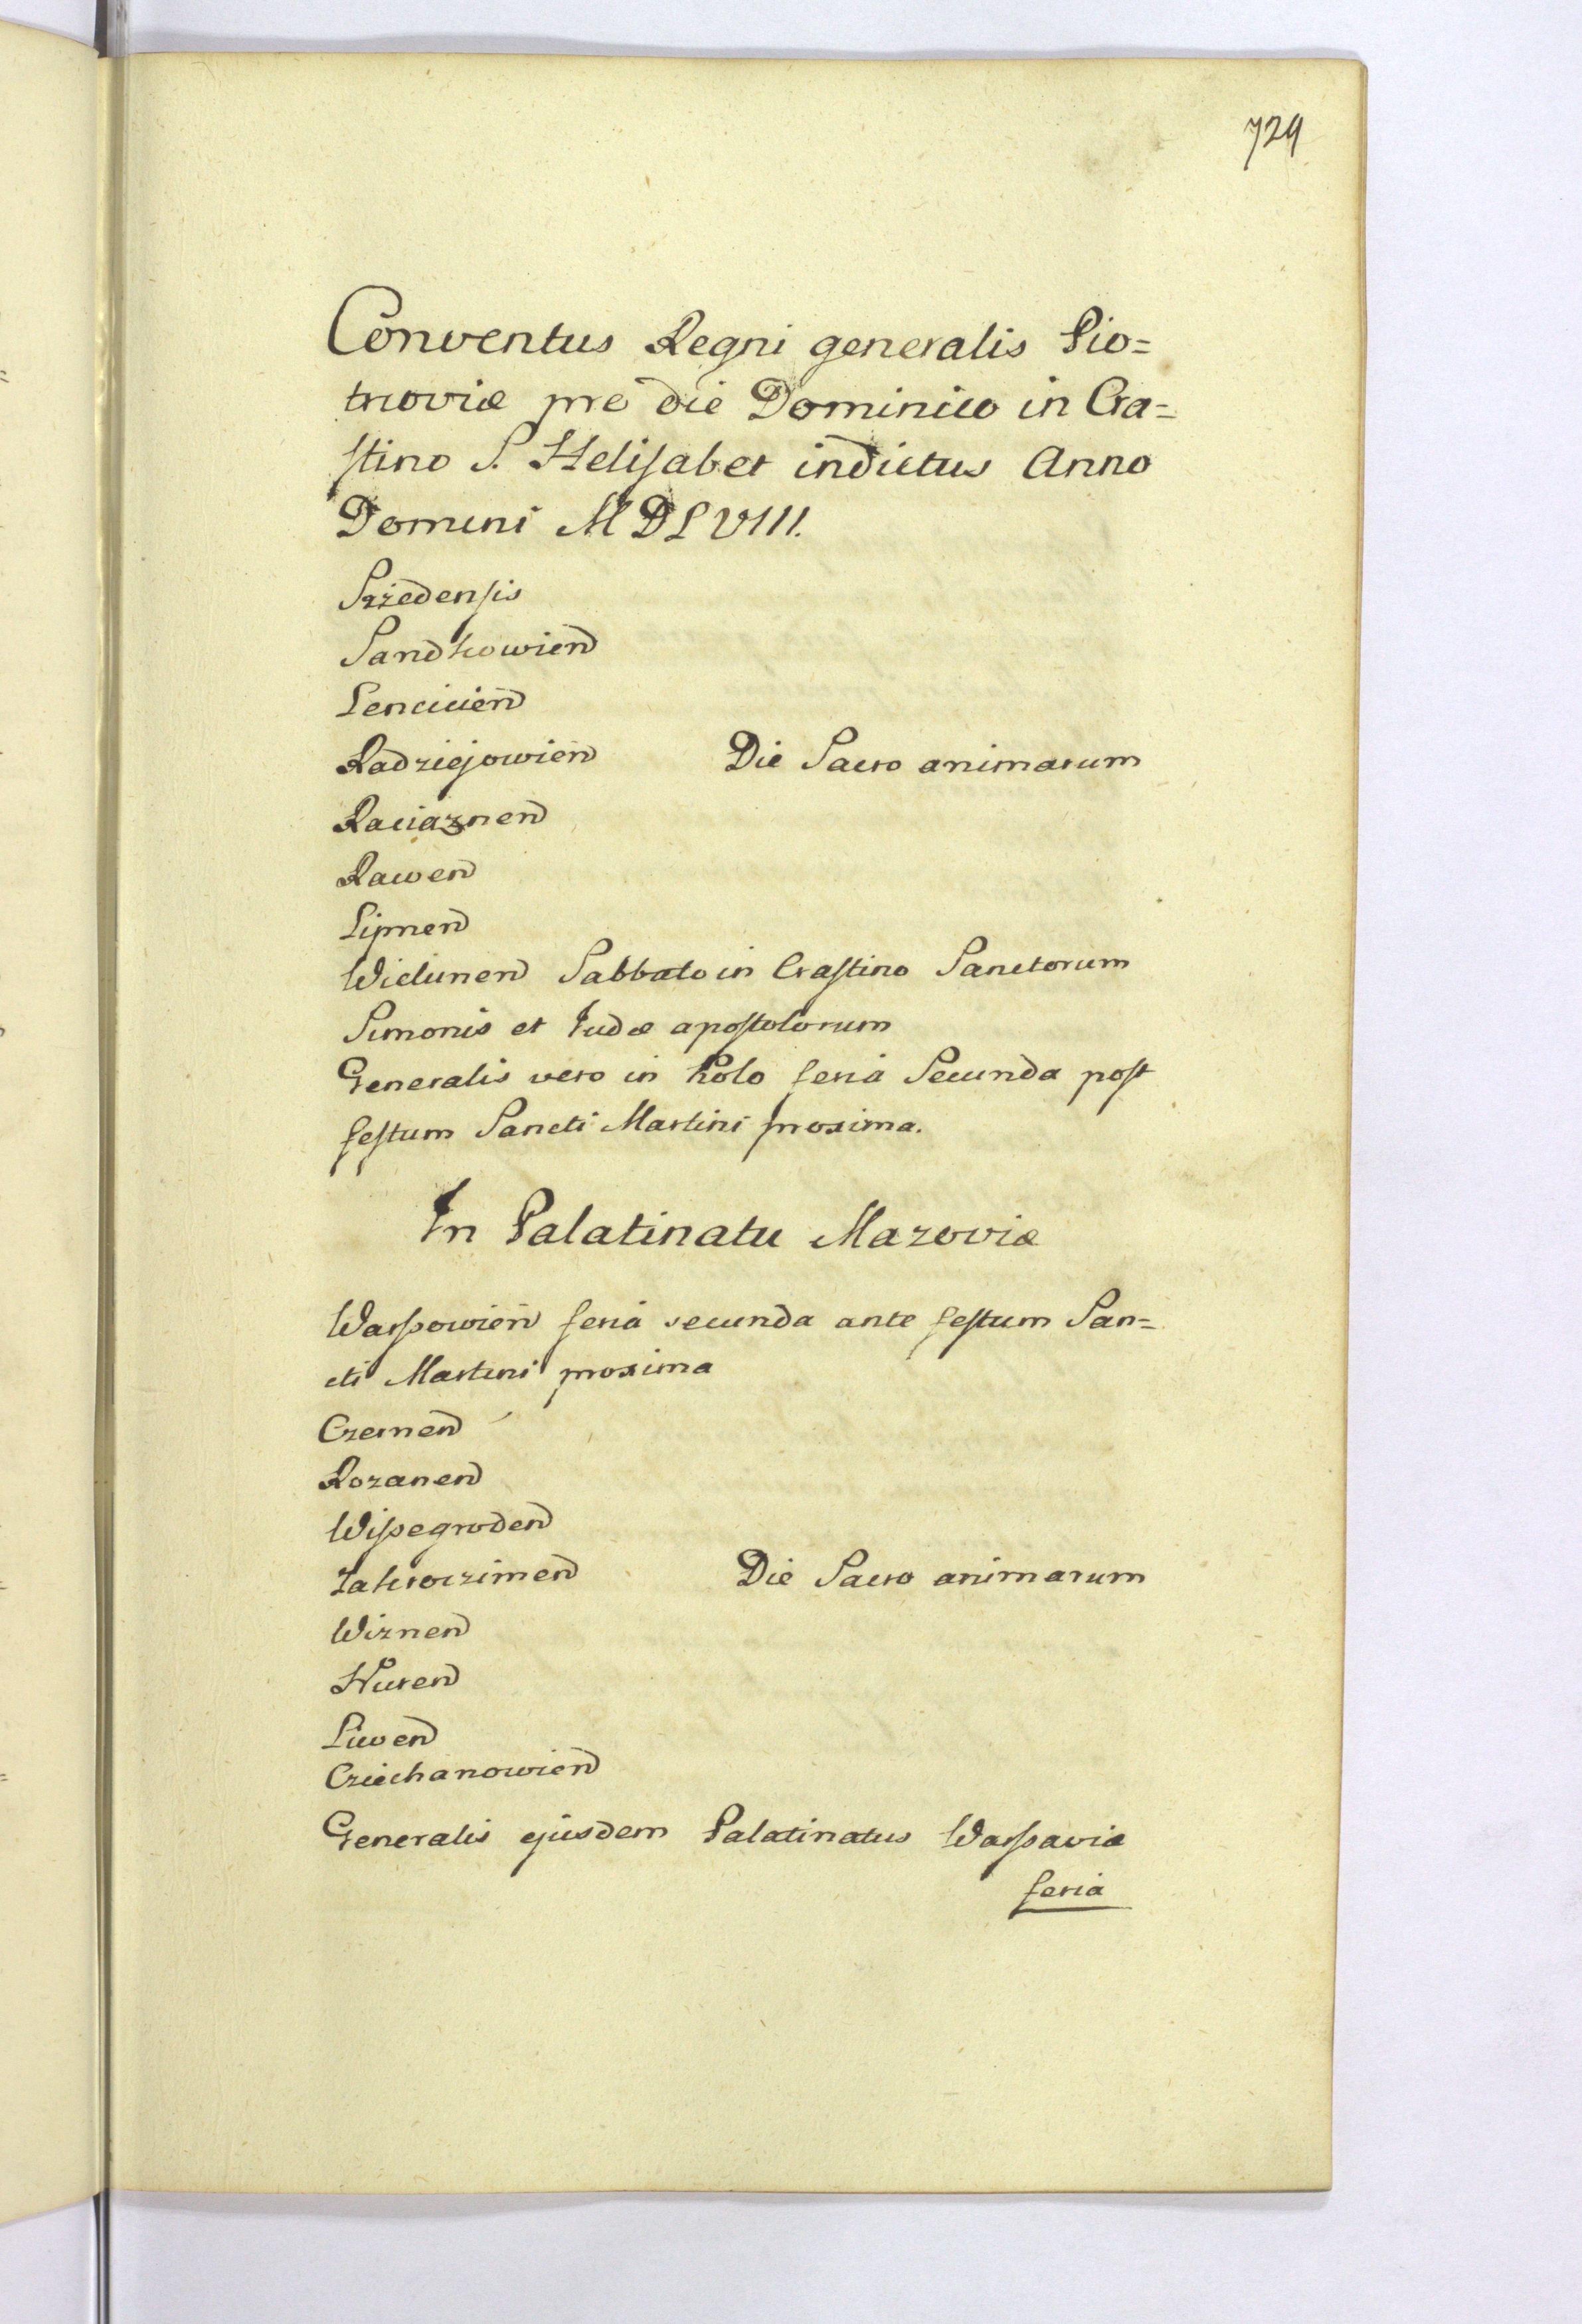 729
Conventus Regni generalis Pio=
trcoviæ pro die Dominico in Cra=
stino S. Helisabet indictus Anno
Domini MDLVIII.
Srzedensis
Sandkowien
Lencicien
Radziejowien Die Sacro animarum
Raciaznen
Rawen
Lipnen
Wielunen Sabbato in Crastino Sanctorum
Simonis et Judæ apostolorum
Generalis vero in Kolo feria Secunda post
festum Sancti Martini proxima.
In Palatinatu Mazoviæ
Warssowien feria secunda ante festum San=
cti Martini proxima
Czernen
Rozanen
Wissegroden
Zakroczimen Die Sacro animarum
Wiznen
Nuren
Liwen
Cziechanowien
Generalis ejusdem Palatinatus Warssaviæ
feria